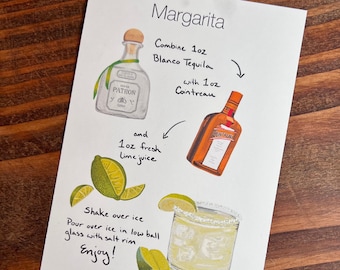 Margarita
Combine 1oz
Blanco Tequila
PATRÓN
with 1oz
Cointreau
and
1oz fresh
lime juice
Shake over ice
Pour over ice in low ball
glass with salt rim
Enjoy!